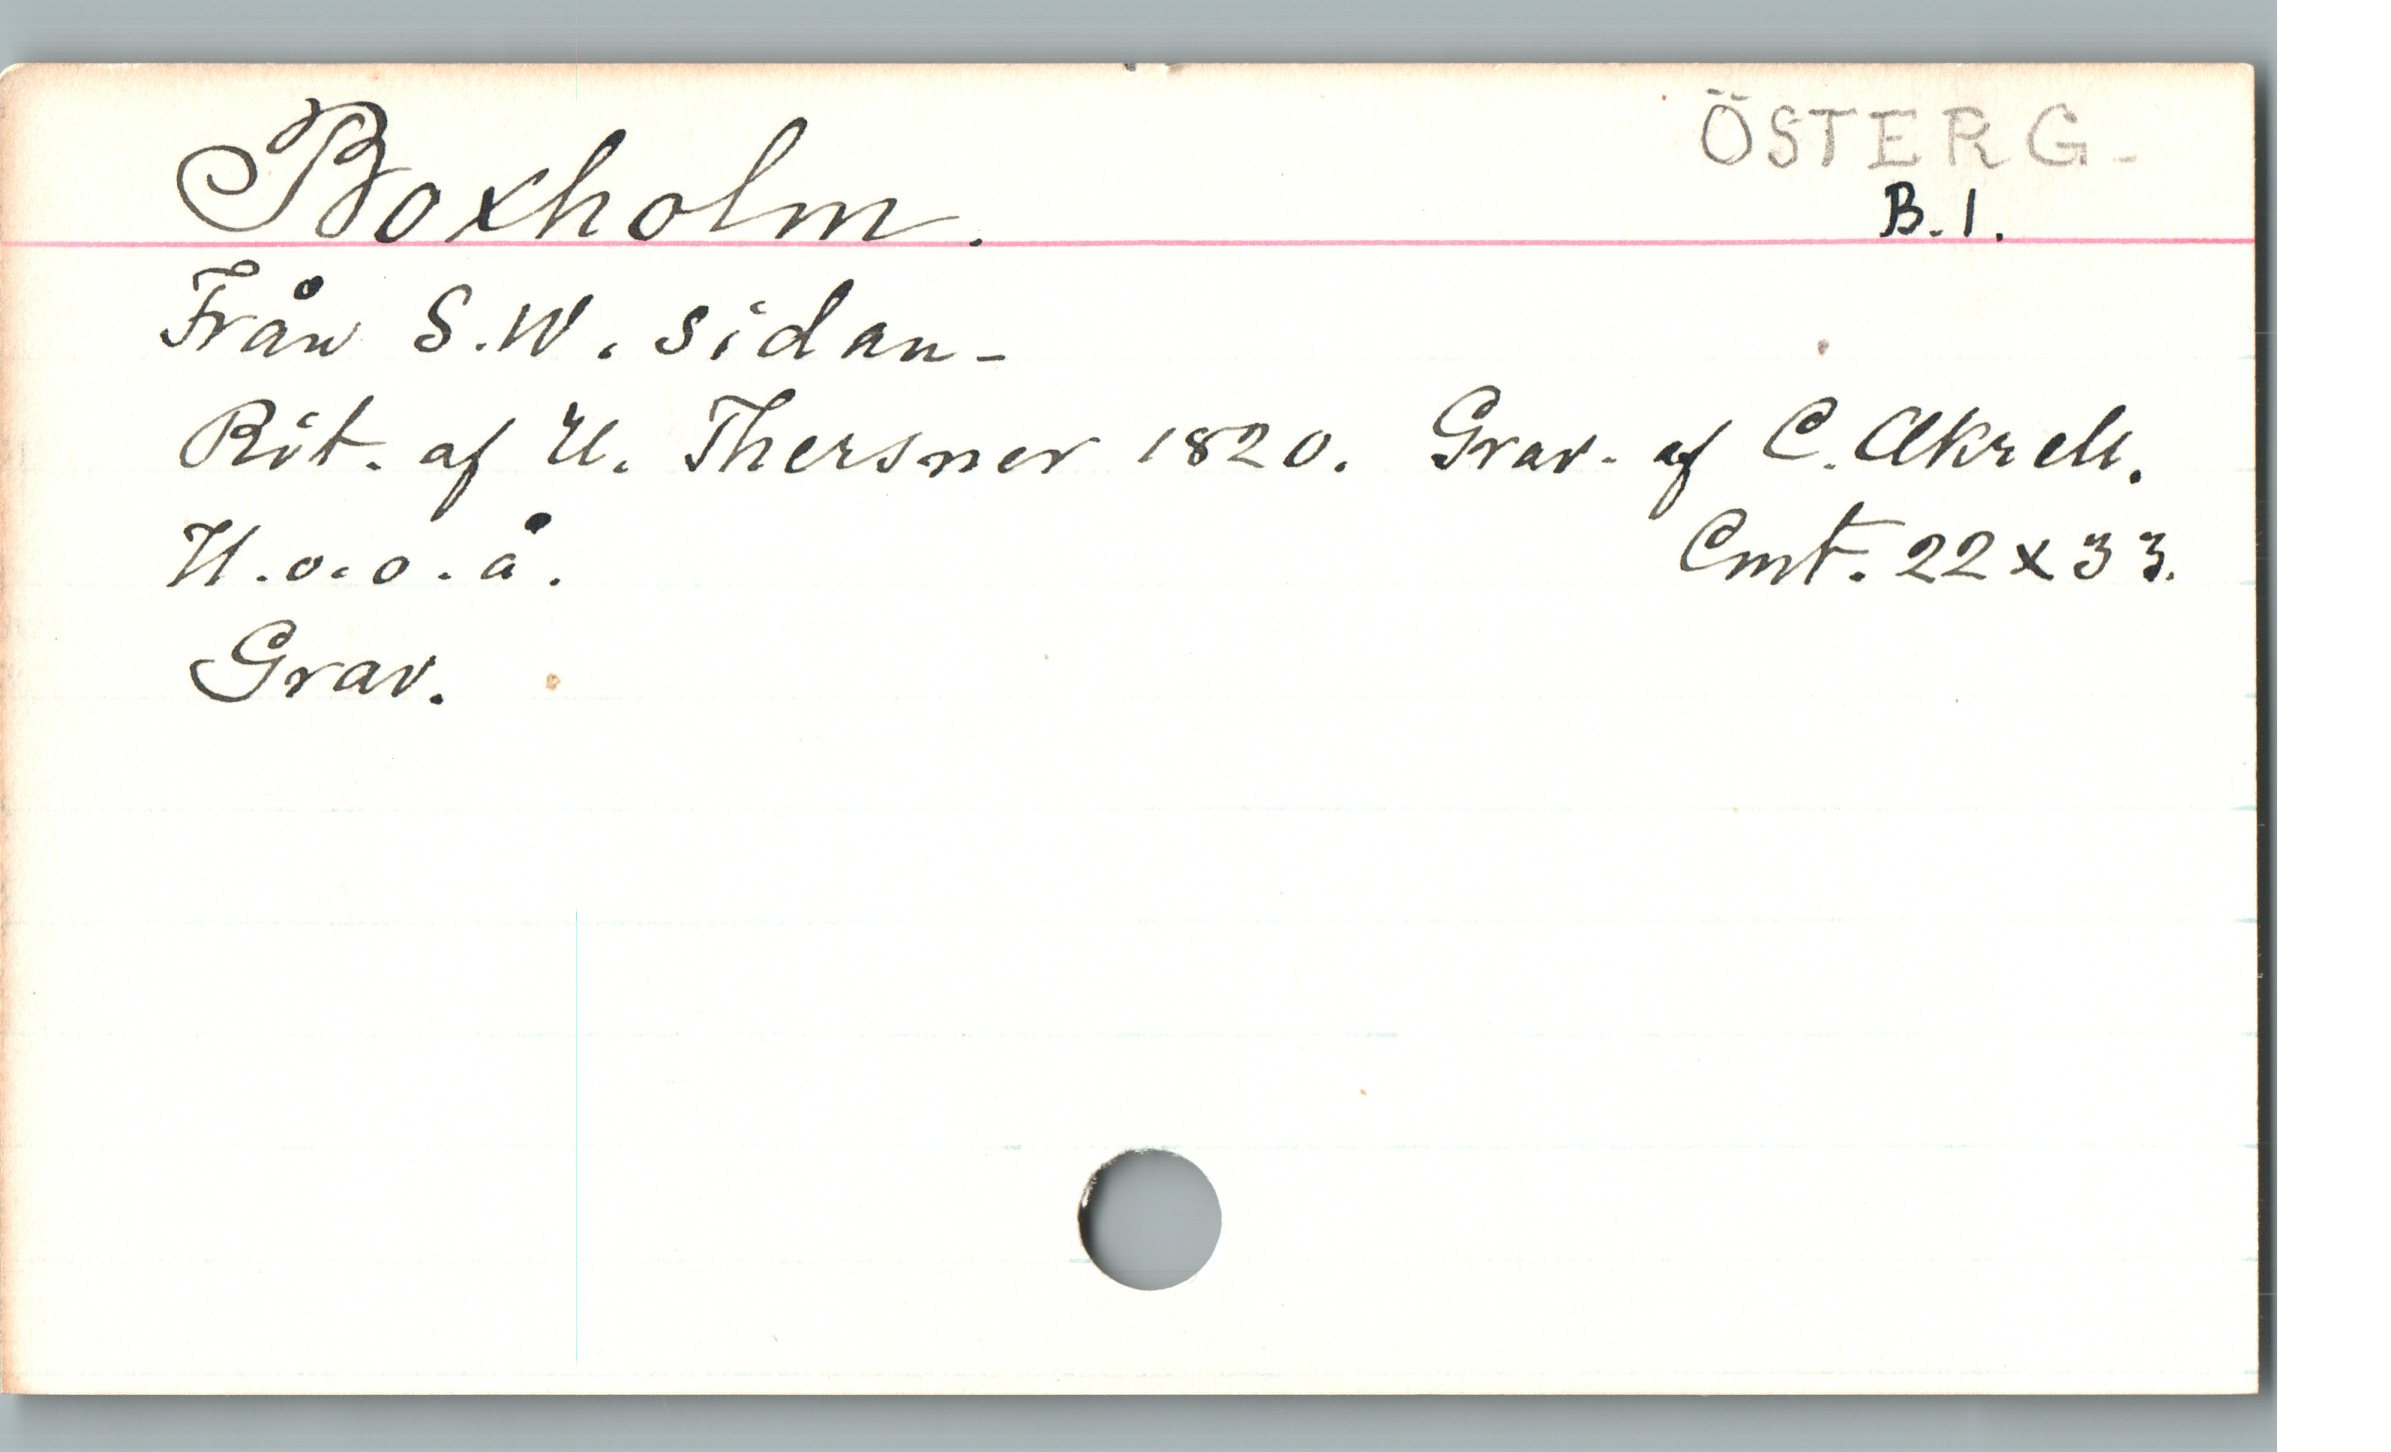 Boxholm.
ÖSTERG.
B.1.
Från S.W. sidan.
Rit. af U. Thersner 1820. Grav. af C. Akrell.
U.o.o.å.
Cmt. 22x33.
Grav.